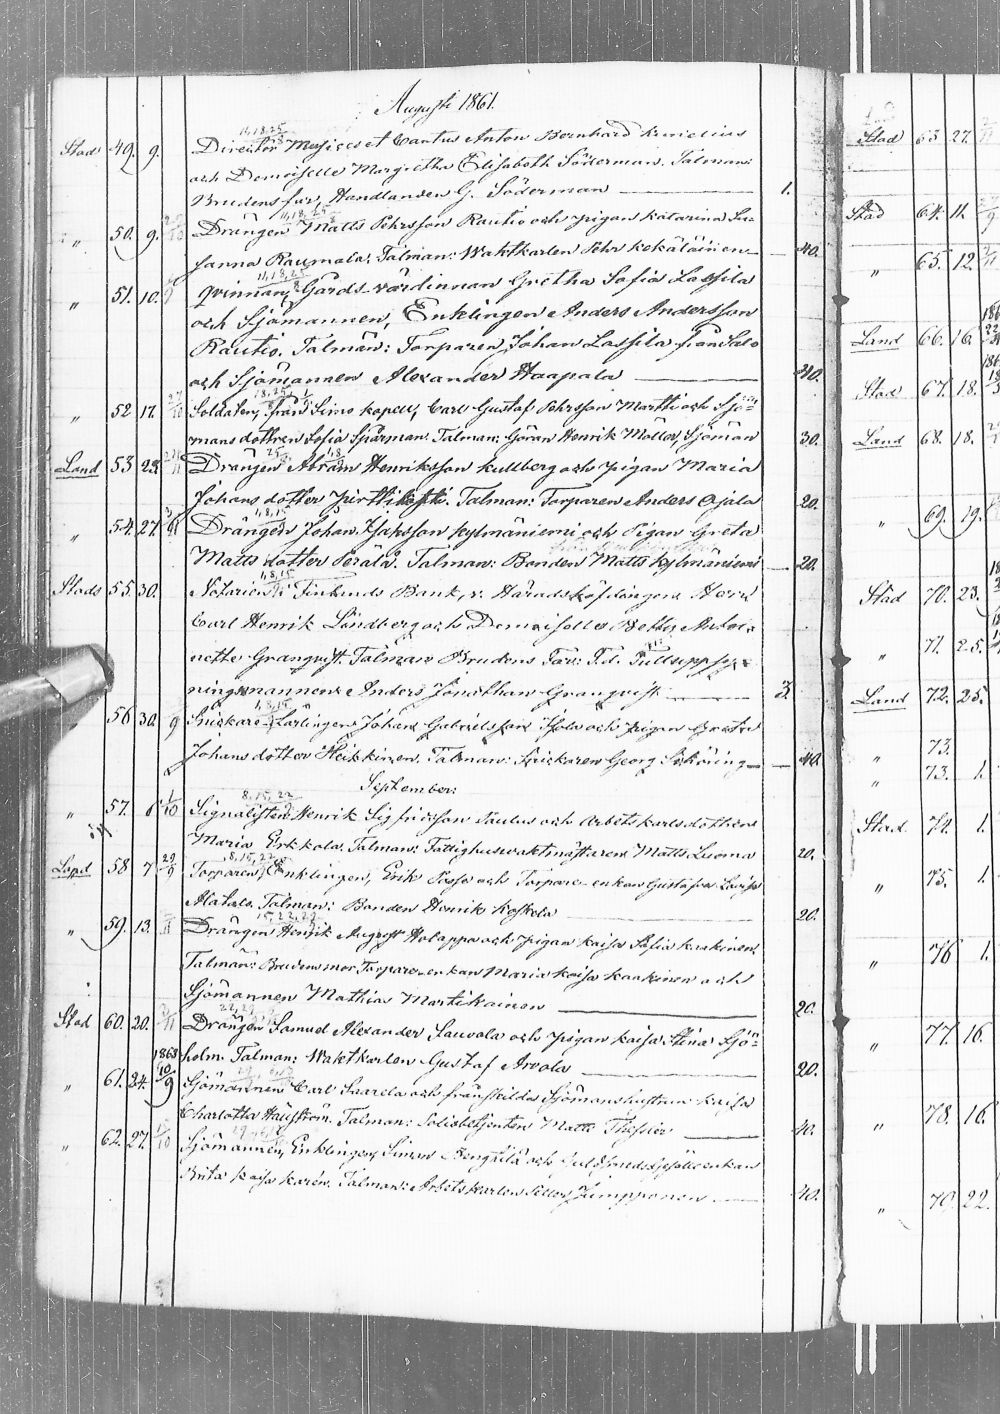 Augusti 1861.
11, 18, 25
Stad 49. 9. Director Musices et Cantus Anton Bernhard
och Demoiselle Margretha Elisabeth Söderman. Talman:
Brudens far, Handlanden G. Söderman 1.
11, 18, 25
" 50. 9. Drängen Matts Pehrsson Rautio och pigan Katarina Su-
sanna Raumala. Talman: Waktkarlen Pehr Kekäläinen 40.
11, 18, 25
" 51. 10. Qvinnan, Gårds-värdinnan Gretha Sofia Lassila
och Sjömannen, Enklingen Anders Andersson
Rautio. Talmän: Torparen Johan Lassila från Salo
och Sjömannen Alexander Haapala 40.
18, 25
" 52 17. Soldaten, från Simo kapell, Carl Gustaf Pehrsson Martti och Sjö-
mans dottren Sofia Sparman. Talman: Göran Henrik Möller, Sjöman 30.
Land 53 23. Drängen Abram Henriksson Kullberg och pigan Maria
Johans dotter Pirttikoski. Talman: Torparen Anders Ojala 20.
1, 8, 15
" 54. 27. Drängen Johan Isaksson Kylmäniemi och Pigan Greta
Matts dotter Perälä. Talman: Bonden Matts Kylmäniemi 20.
1, 8, 15
Stads 55. 30. Notarien i Finlands Bank, v. Häradshöfdingen Herr
Carl Henrik Lindberg och Demoiselle Betty Antoi-
nette Granqvist. Talman Brudens Far: F.d. Tulluppsy-
ningsmannen Anders Jonathan Granqvist 3.
1, 8, 15
56 30. Snickare-Lärlingen Johan Gabrielsson och pigan Greta
Johans dotter Heikkinen. Talman: Snickaren Georg 40.
September:
8, 15, 22
" 57. 6 1/10 Signalisten Henrik Sigfridsson Paulus och Arbetskarlsdottren
Maria Erkkola. Talman: Fattighusvaktmästaren Matts Luoma 20.
8, 15, 22
Land 58 7 29/9 Torparen, Enklingen, Erik Posso och Torpare-enkan Gustafva Lovisa
Alatalo. Talman: Bonden Henrik Koskela 20.
15, 22, 29
" 59. 13. Drängen Henrik August Holappa och pigan Kaisa Sofia Kaakinen.
Talmän: Brudens mor Torpare-enkan Maria Kaisa Kaakinen och
Sjömannen Mathias Martikainen 20.
Stad 60. 20. Drängen Samuel Alexander Sauvola och pigan Kaisa Stina Sjö-
holm. Talman: Waktkarlen Gustaf Arvola 20.
1863
" 61. 24. 10/9 Sjömannen Carl Saarela och frånskilda Sjömanshustrun Kaisa
Charlotta Hallström. Talman: Polisbetjenten Matts Thesler 40.
" 62. 27. Sjömannen, Enklingen, Simon Bengtilä och Guldsmedsgesällenkan
Brita Kaisa Karén. Talman: Arbetskarlen Petter Jumpponen 40.
Stad 63 27.
Stad 64. 11.
" 65. 12.
Land 66. 16.
Stad 67. 18.
Land 68. 18.
" 69. 19.
Stad 70. 23.
" 71. 25.
Land 72. 25.
" 73.
" 73. 1.
Stad. 74. 1.
" 75. 1.
" 76 1.
" 77. 16.
" 78. 16.
" 79. 22.